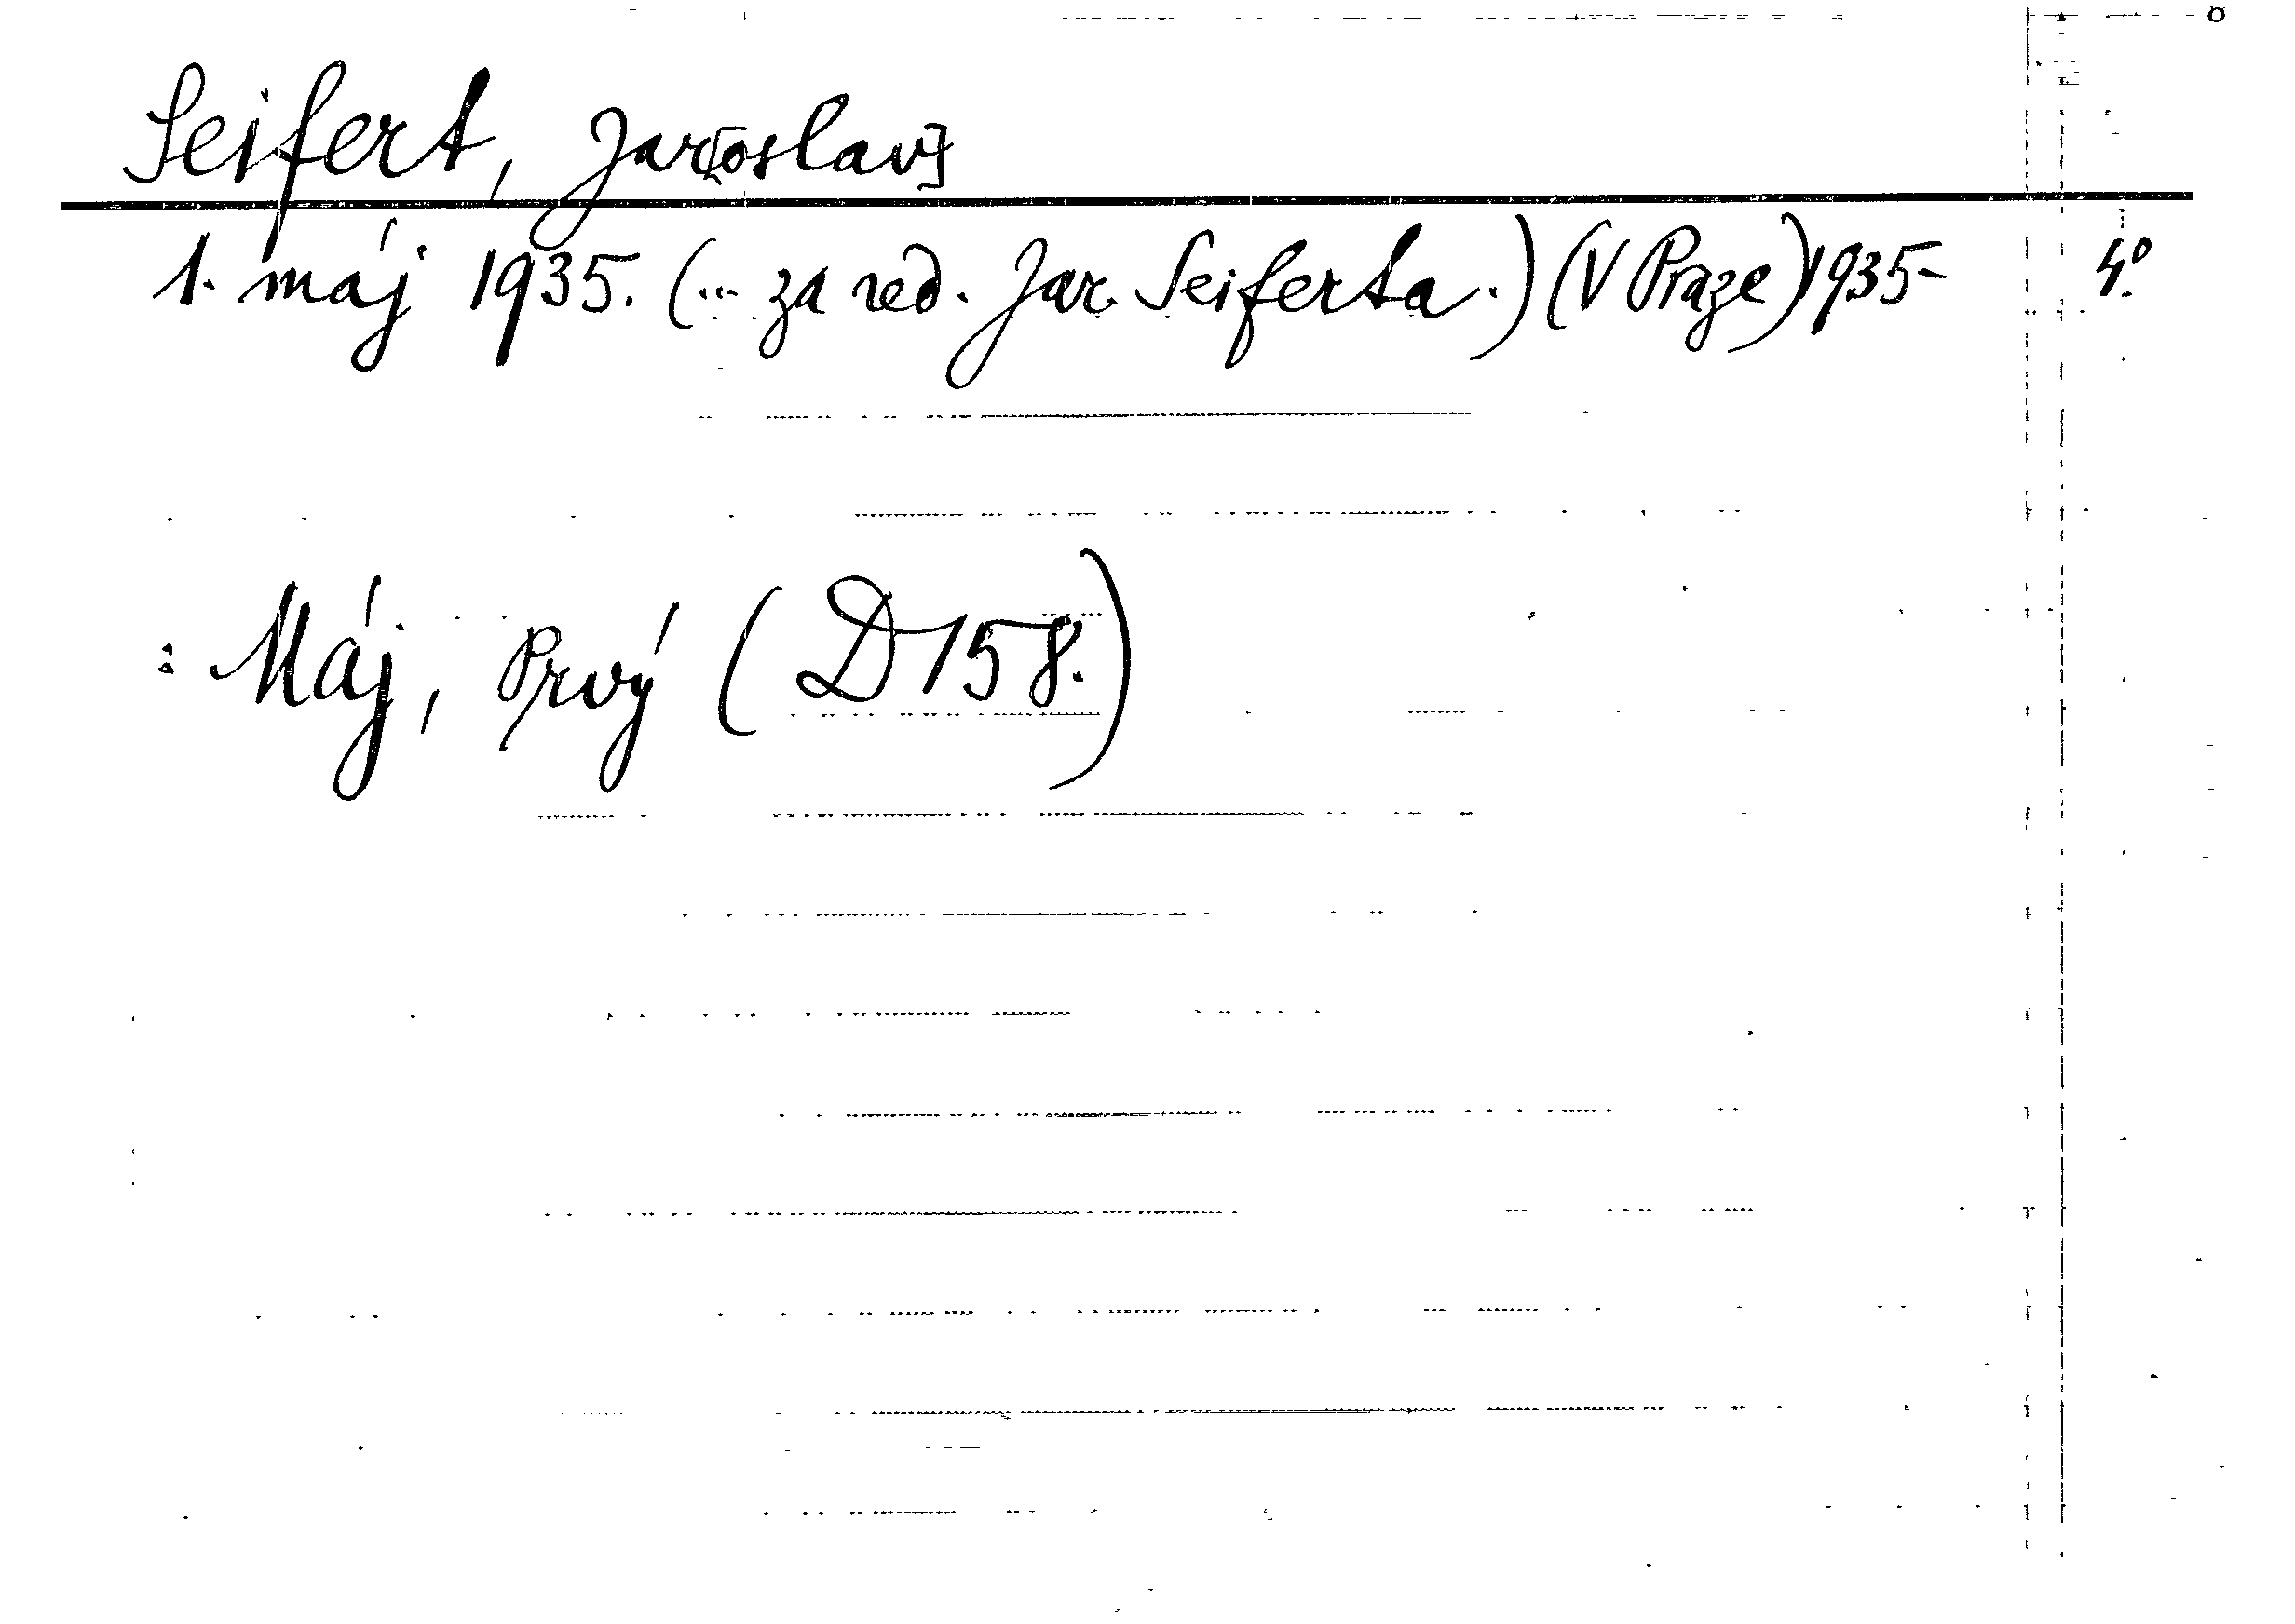 Seifert, Jar[oslav]
1. máj 1935. (... za red. Jar. Seiferta.) (V Praze) 1935- 4°.
: Máj, Prvý (D 158.)